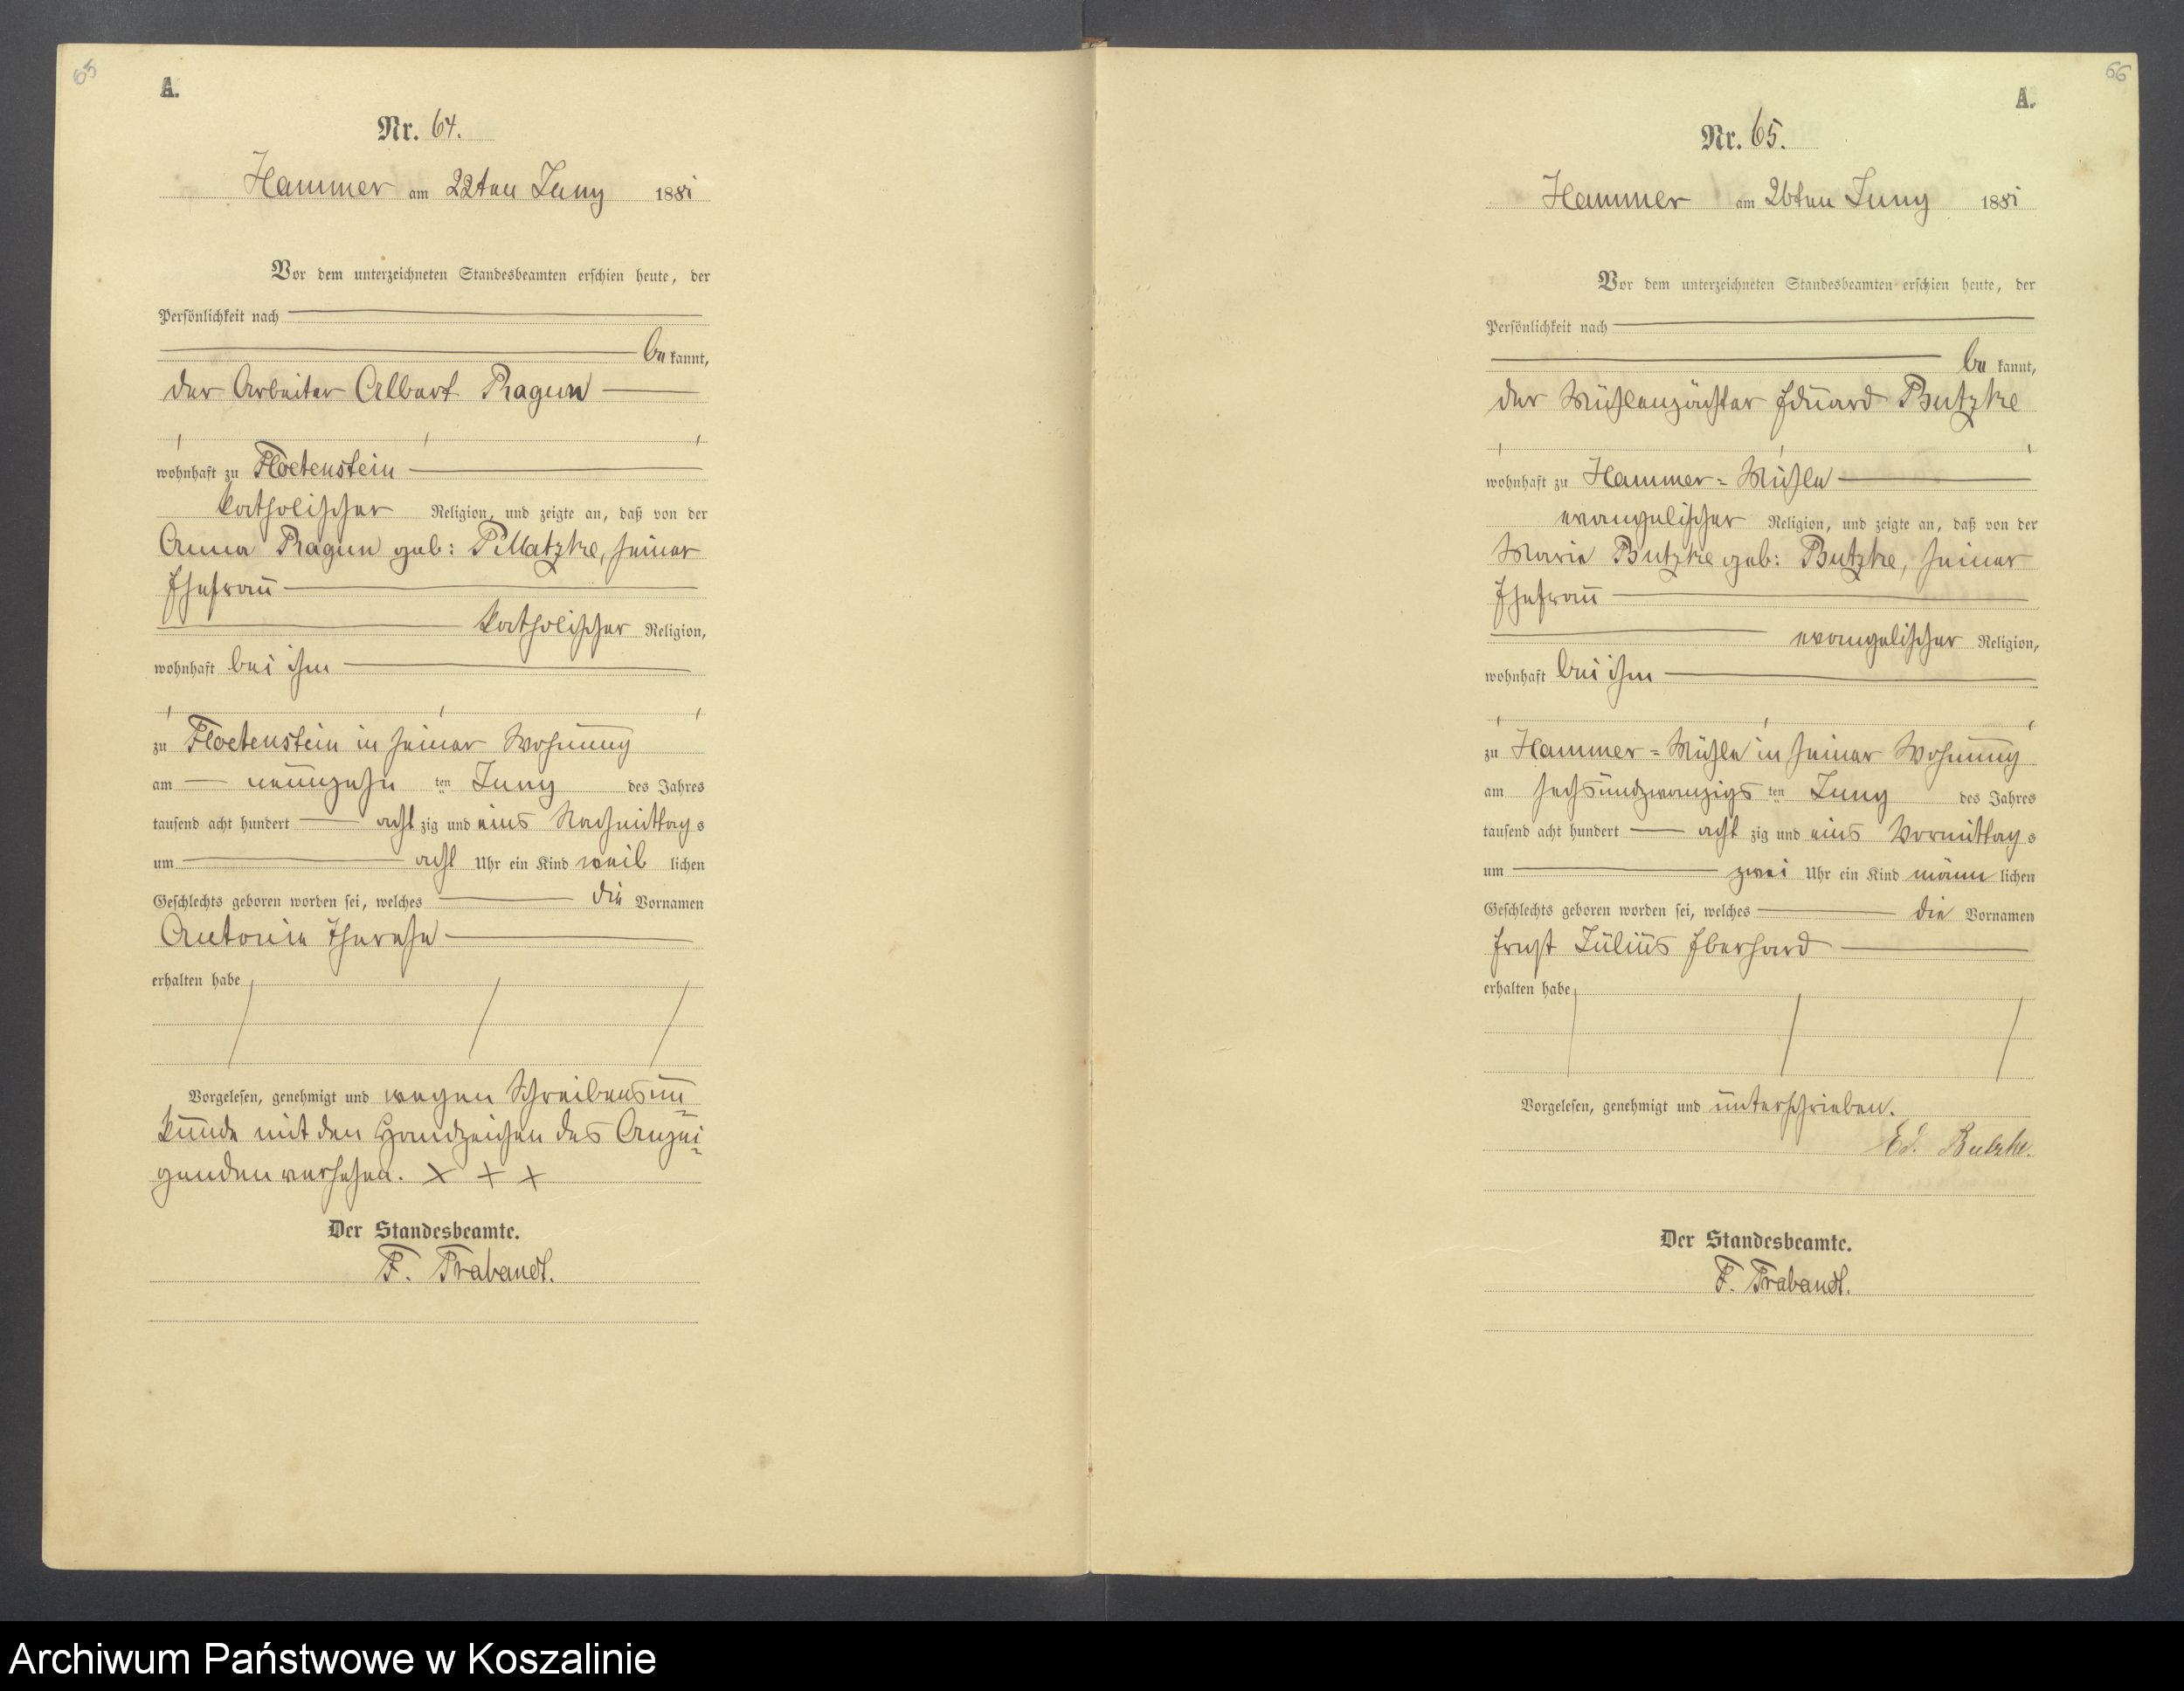 65
A.
Nr. 64.
Hammer am 22ten Juny 1881
Vor dem unterzeichneten Standesbeamten erschien heute, der
Persönlichkeit nach
be kannt,
der Arbeiter Albert Ragun
wohnhaft zu Floetenstein
katholischer Religion, und zeigte an, daß von der
Anna Ragun geb: Pillatzke, seiner
Ehefrau
katholischer Religion,
wohnhaft bei ihm
zu Floetenstein in seiner Wohnung
am neunzehn ten Juny des Jahres
tausend acht hundert acht zig und eins Nachmittags
um acht Uhr ein Kind weib lichen
Geschlechts geboren worden sei, welches die Vornamen
Antonie Therese
erhalten habe
Vorgelesen, genehmigt und wegen Schreibensun
kunde mit den Handzeichen des Anzei
genden versehen. X X X
Der Standesbeamte.
F. Trabandt.
66
A.
Nr. 65.
Hammer am 26ten Juny 1881
Vor dem unterzeichneten Standesbeamten erschien heute, der
Persönlichkeit nach
be kannt,
der Mühlenpächter Eduard Butzke
wohnhaft zu Hammer=Mühle
evangelischer Religion, und zeigte an, daß von der
Marie Butzke geb: Butzke, seiner
Ehefrau
evangelischer Religion,
wohnhaft bei ihm
zu Hammer=Mühle in seiner Wohnung
am sechsundzwanzigs ten Juny des Jahres
tausend acht hundert acht zig und eins Vormittags
um zwei Uhr ein Kind männ lichen
Geschlechts geboren worden sei, welches die Vornamen
Ernst Julius Eberhard
erhalten habe
Vorgelesen, genehmigt und unterschrieben.
Ed. Butzke.
Der Standesbeamte.
F. Trabandt.
Archiwum Państwowe w Koszalinie